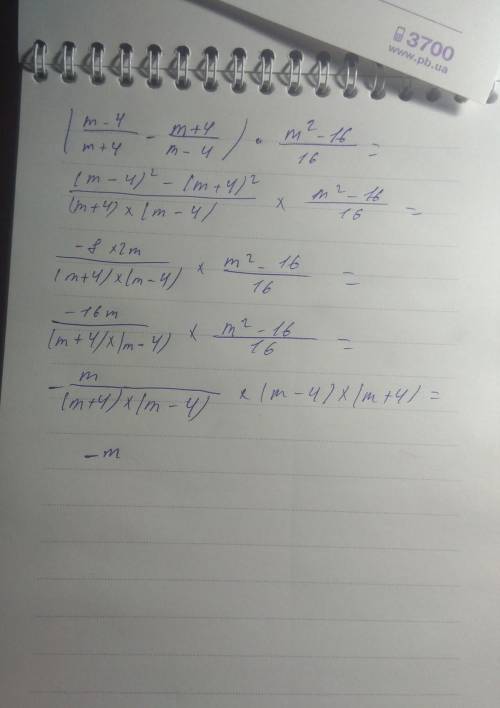 3700
www.pb.ua
( (m-4)/(m+4) - (m+4)/(m-4) ) · (m²-16)/16 =
((m-4)² - (m+4)²)/((m+4)×(m-4)) × (m²-16)/16 =
(-8×2m)/((m+4)×(m-4)) × (m²-16)/16 =
(-16m)/((m+4)×(m-4)) × (m²-16)/16 =
- m/((m+4)×(m-4)) × (m-4)×(m+4) =
-m